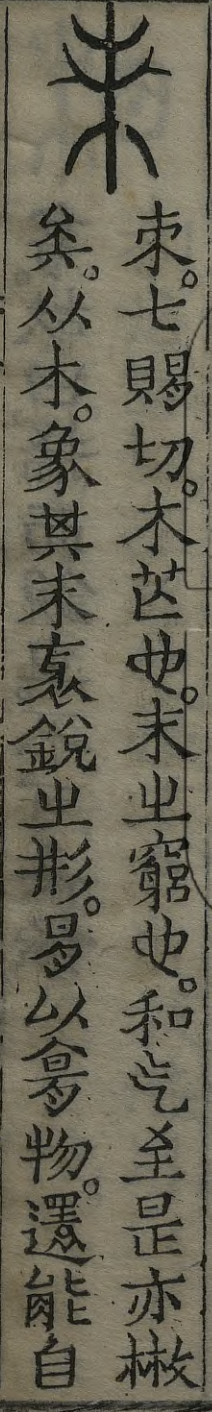 朿
朿。七賜切。木芒也。末之窮也。和气至是亦㪔
矣。从木。象其末衺銳之形。易以傷物。還能自